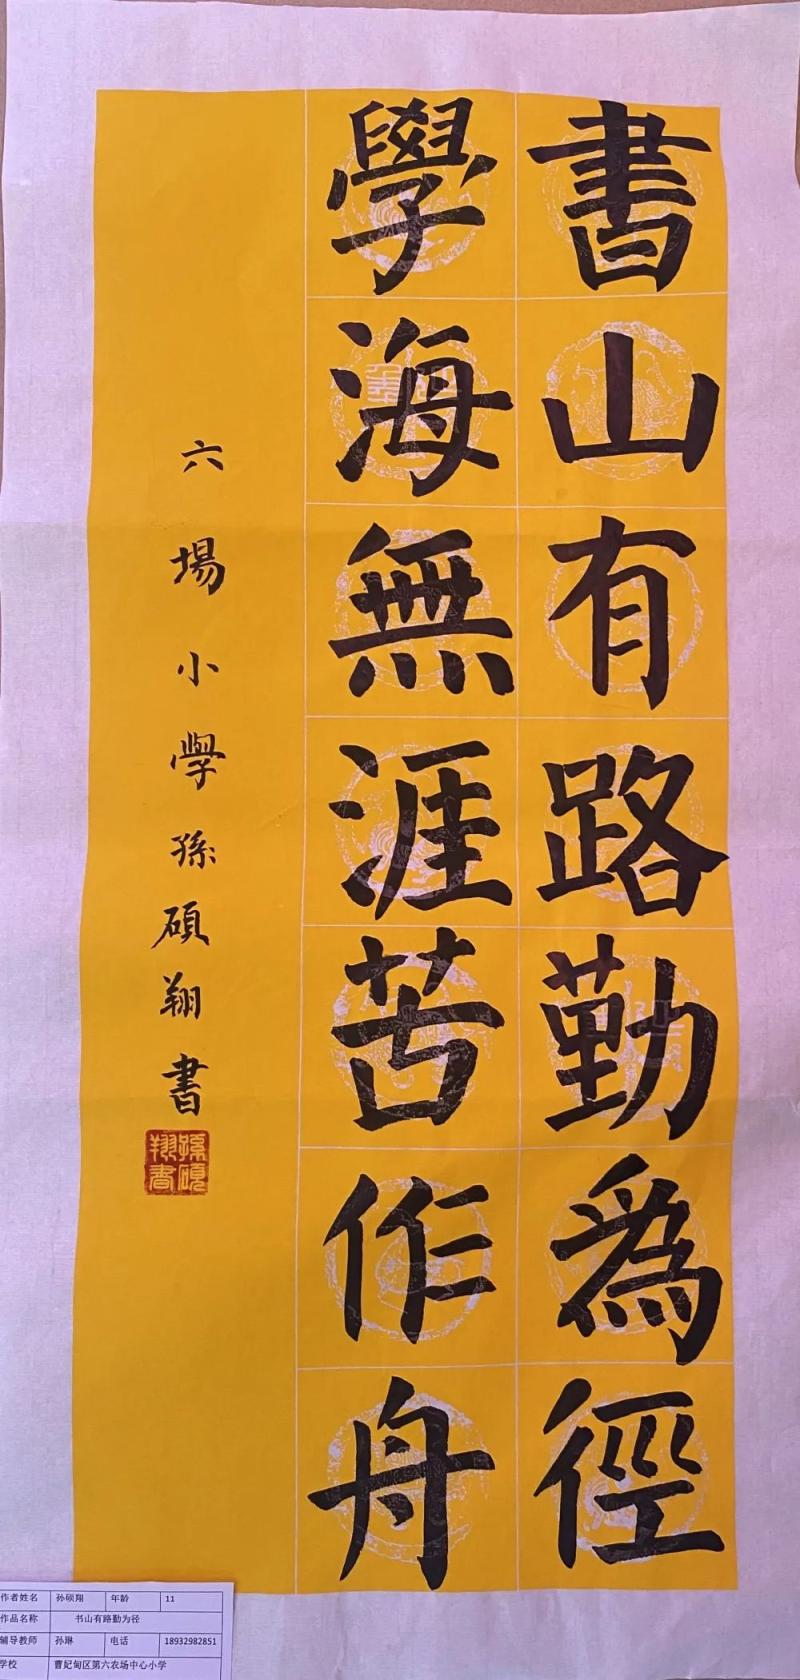 書山有路勤為徑
學海無涯苦作舟
六場小學孫碩翔書
孫碩翔書
作者姓名 孙硕翔 年龄 11
作品名称 书山有路勤为径
辅导教师 孙琳 电话 18932982851
学校 曹妃甸区第六农场中心小学